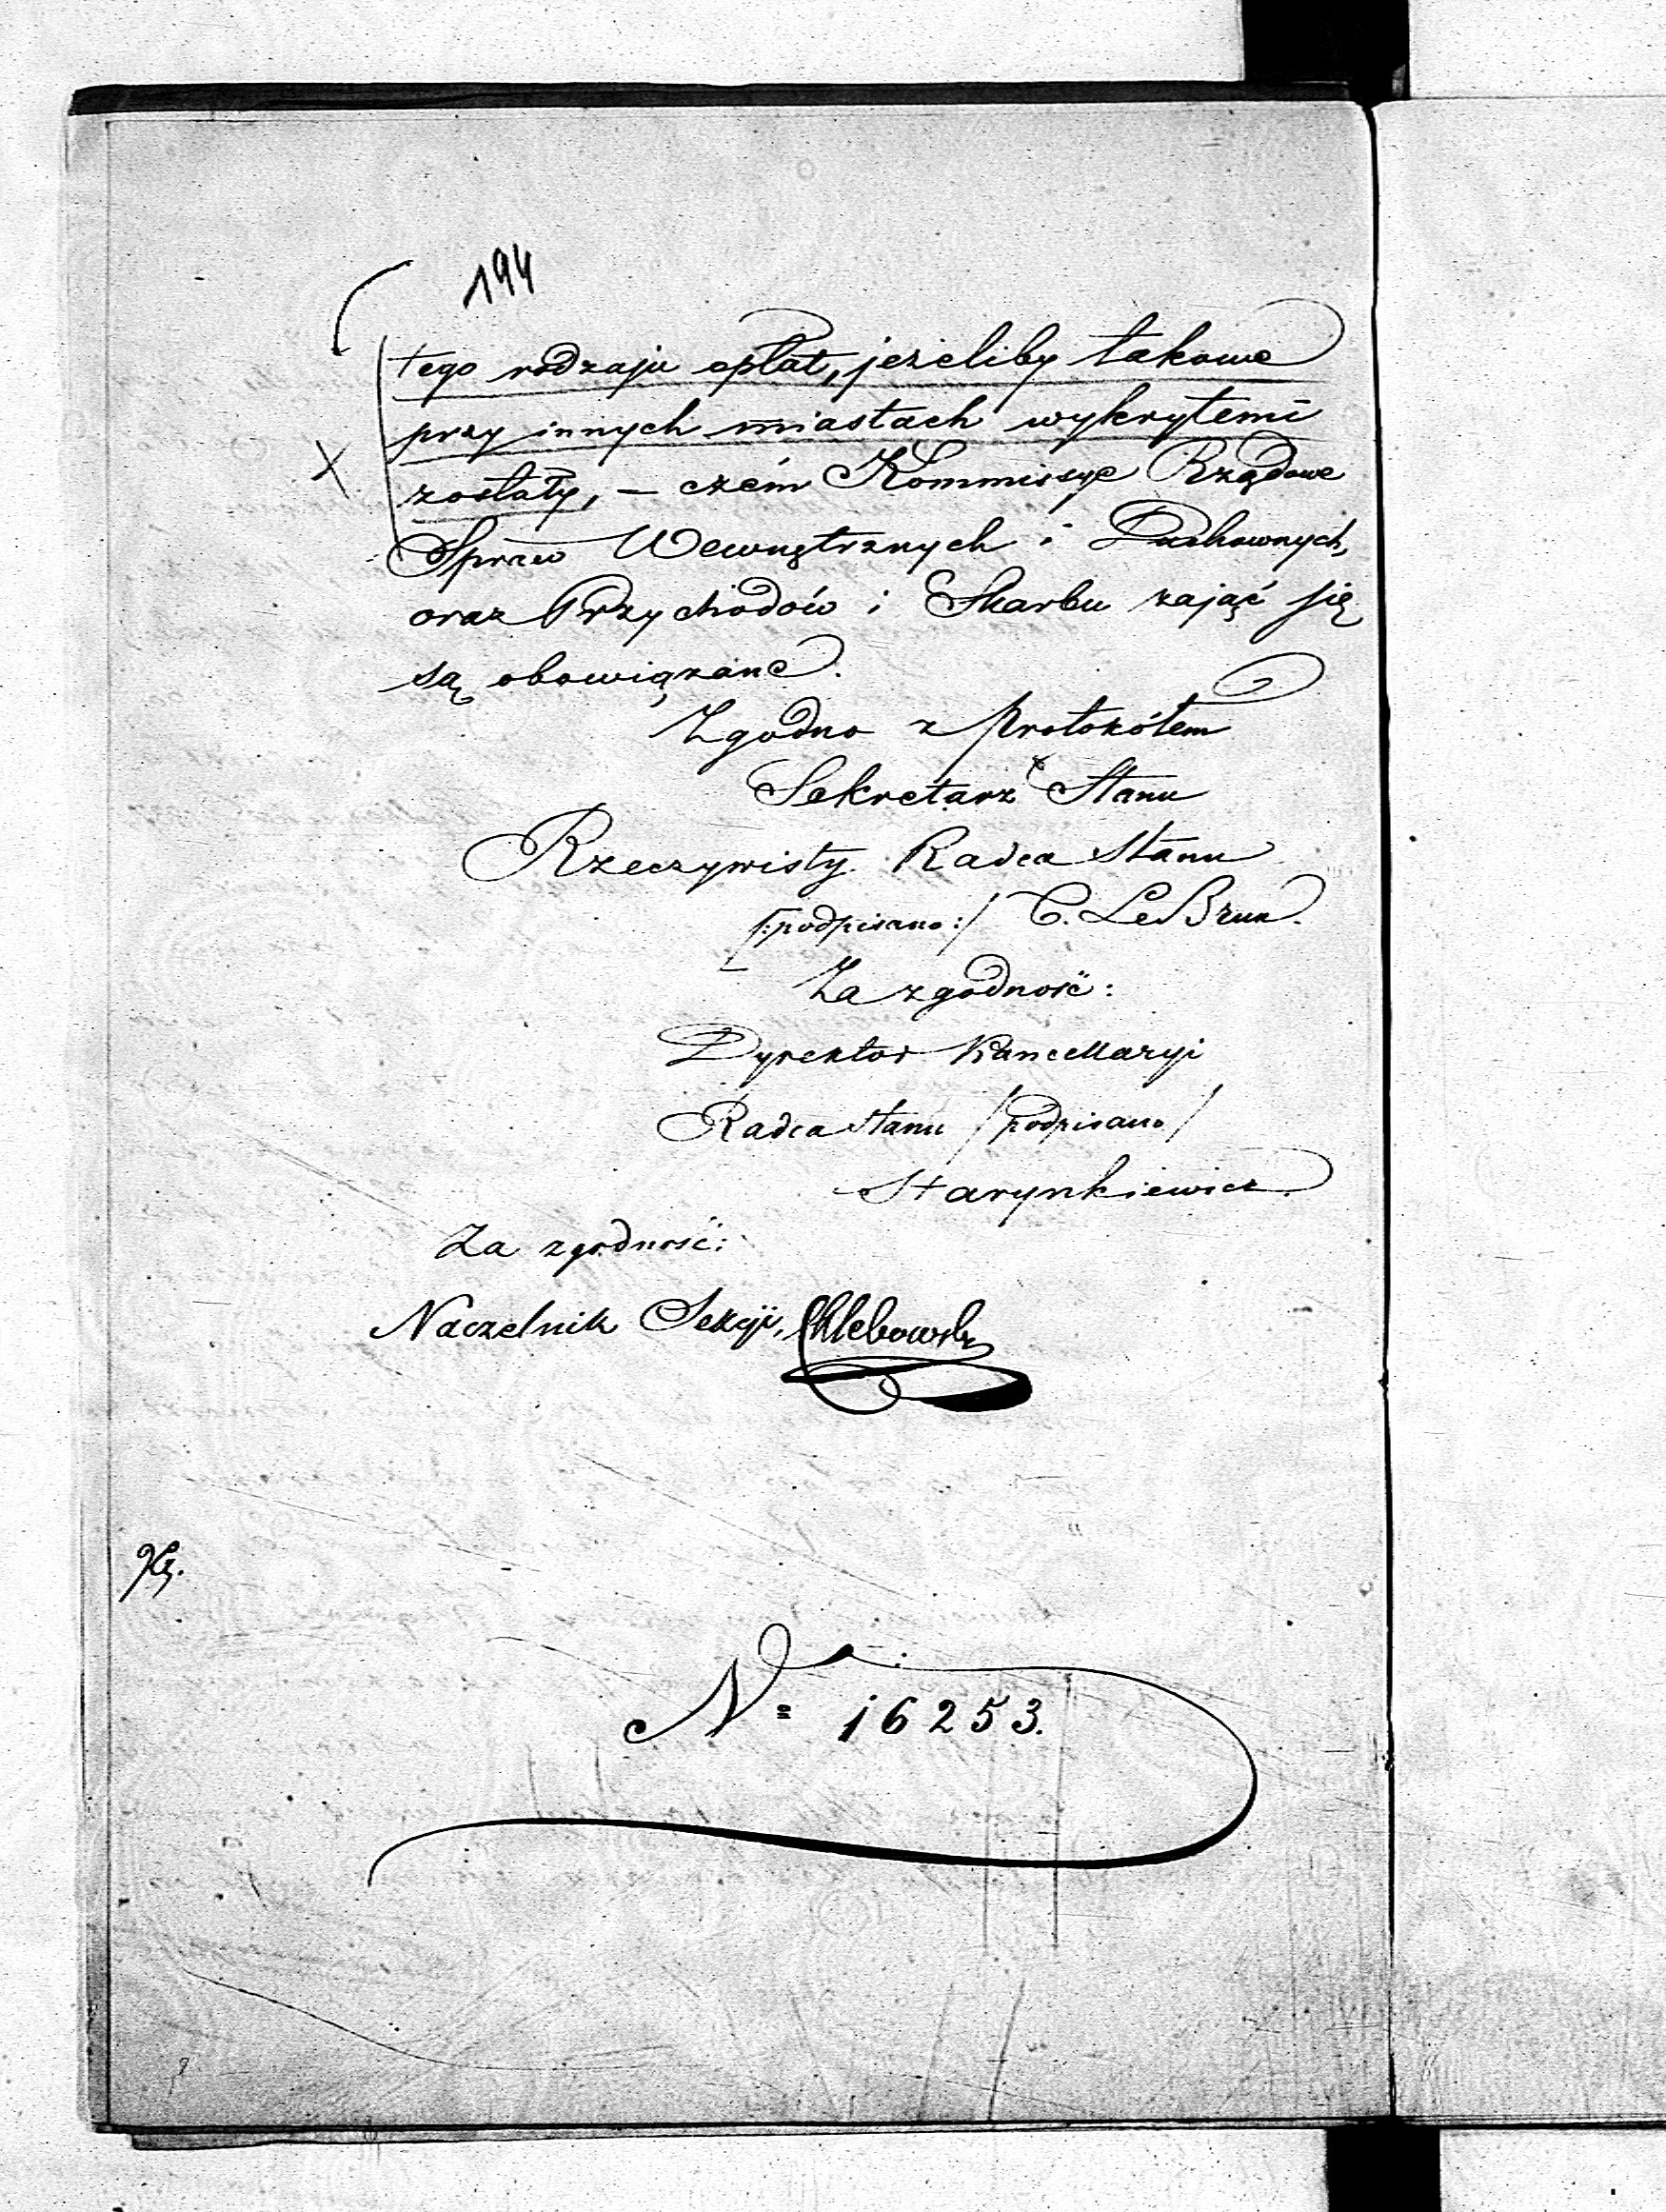 194
tego rodzaju opłat, jeżeliby takowe
przy innych miastach wykrytemi
zostały, – czém Kommissye Rządowe
Spraw Wewnętrznych i Duchownych,
oraz Przychodów i Skarbu zająć się
są obowiązane.
Zgodno z Protokółem
Sekretarz Stanu
Rzeczywisty Radca Stanu
/:podpisano:/ C. Le Brun.
Za zgodność:
Dyrektor Kancellaryi
Radca Stanu /podpisano/
Starynkiewicz.
Za zgodność:
Naczelnik Sekcji, Chlebowski
№ 16253.